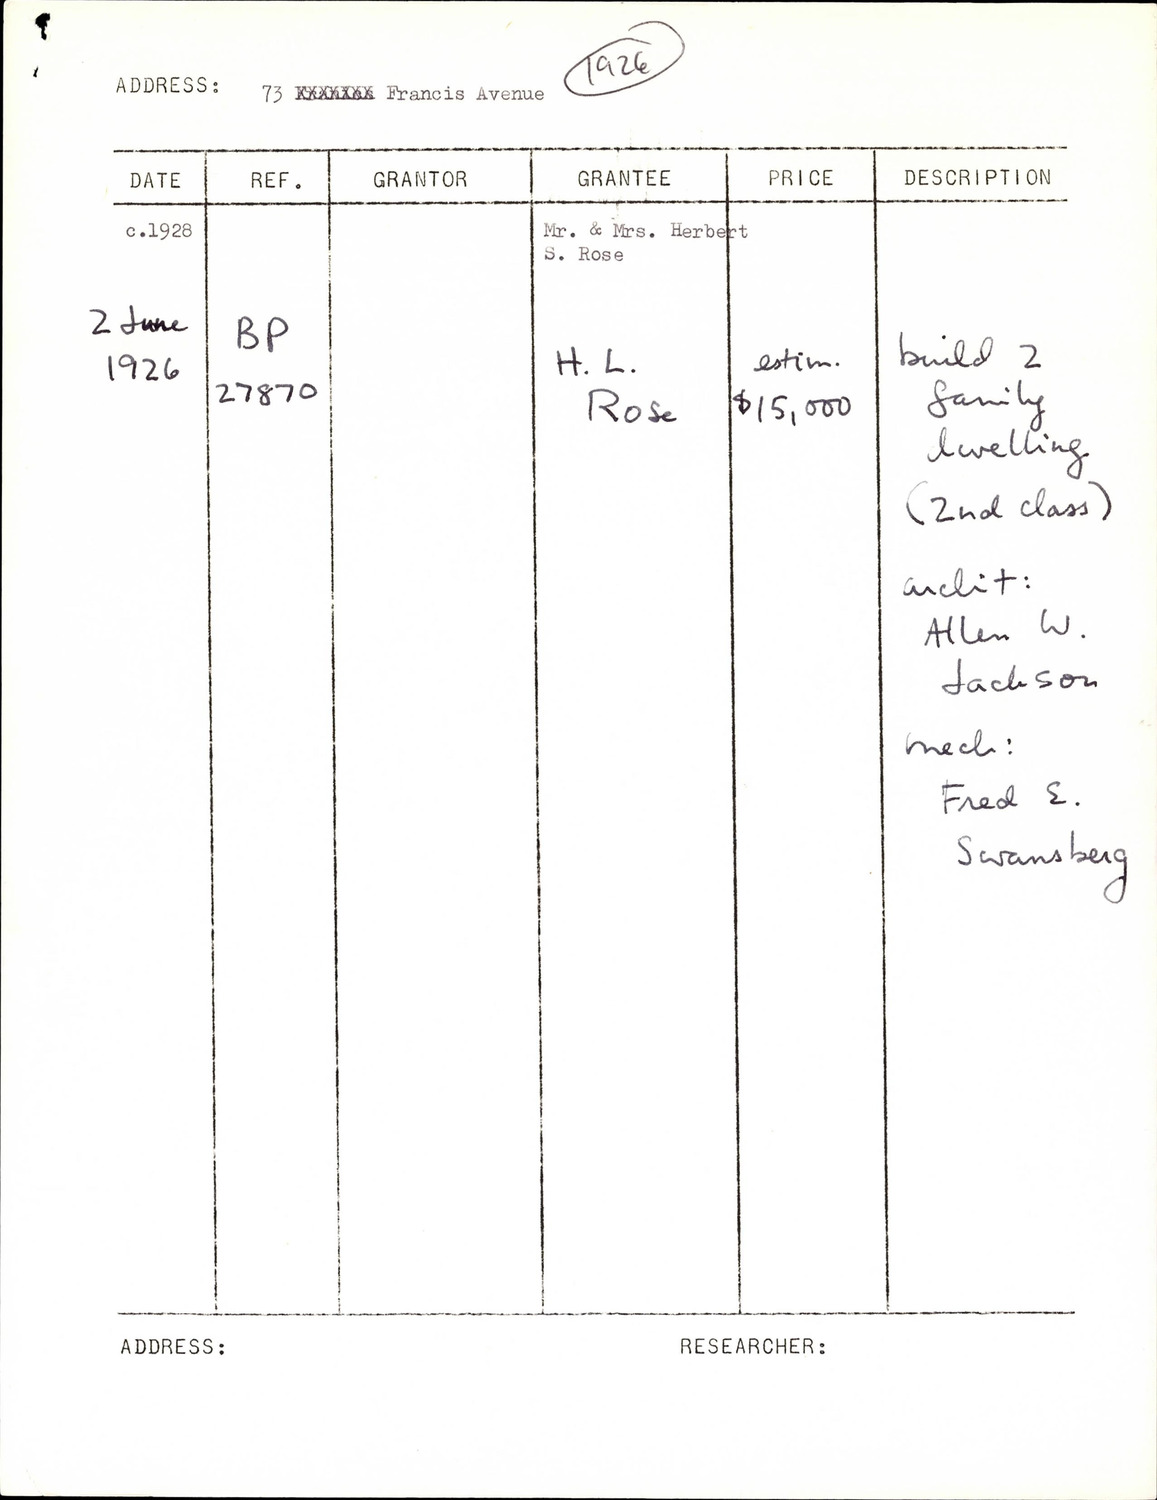 1926
ADDRESS: 73 Francis Avenue
DATE REF. GRANTOR GRANTEE PRICE DESCRIPTION
c.1928 Mr. & Mrs. Herbert
S. Rose
2 June
1926
BP
27870
H. L.
Rose
estim.
$15,000
build 2
family
dwelling
(2nd class)
archit:
Allen W.
Jackson
mech:
Fred E.
Swansberg
ADDRESS: RESEARCHER: